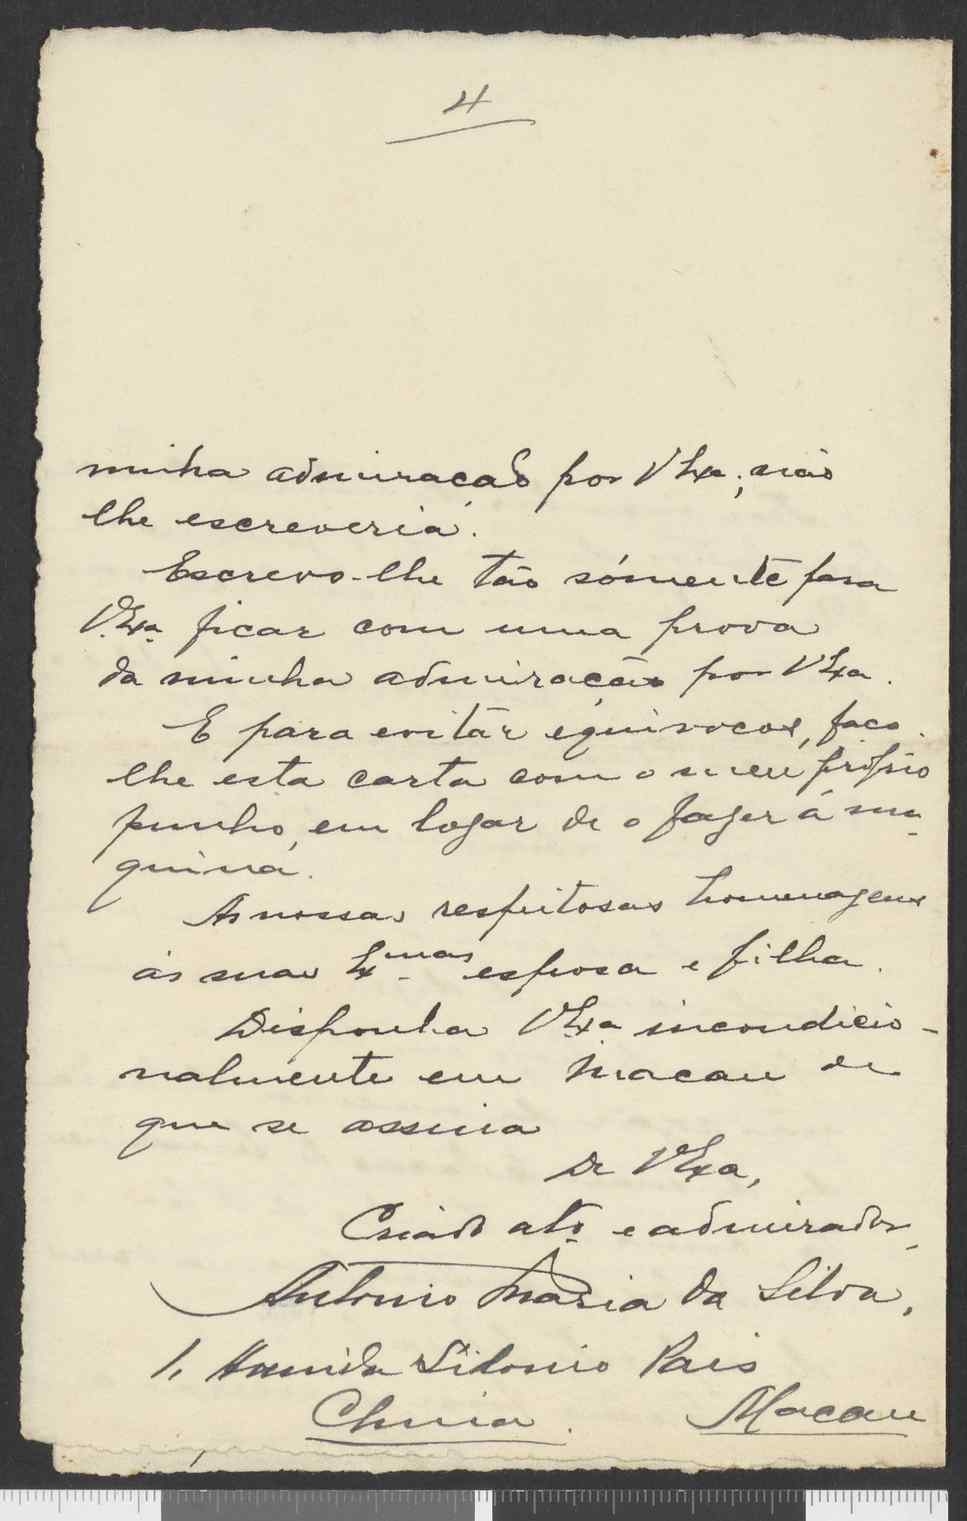 4
minha admiração por V Exa; não
lhe escreveria.
Escrevo-lhe tão sómente para
V. Exa. ficar com uma prova
da minha admiração por V Exa.
E para evitar equivocos, faço-
lhe esta carta com o meu próprio
punho, em logar de o fazer á ma-
quina.
As nossas respeitosas homenagens
ás suas Exmas esposa e filha.
Disponha V Exa incondicio-
nalmente em Macau de
que se assina
De V Exa,
Criado atº e admirador,
Antonio Maria da Silva,
1, Avenida Sidonio Pais
China. Macau